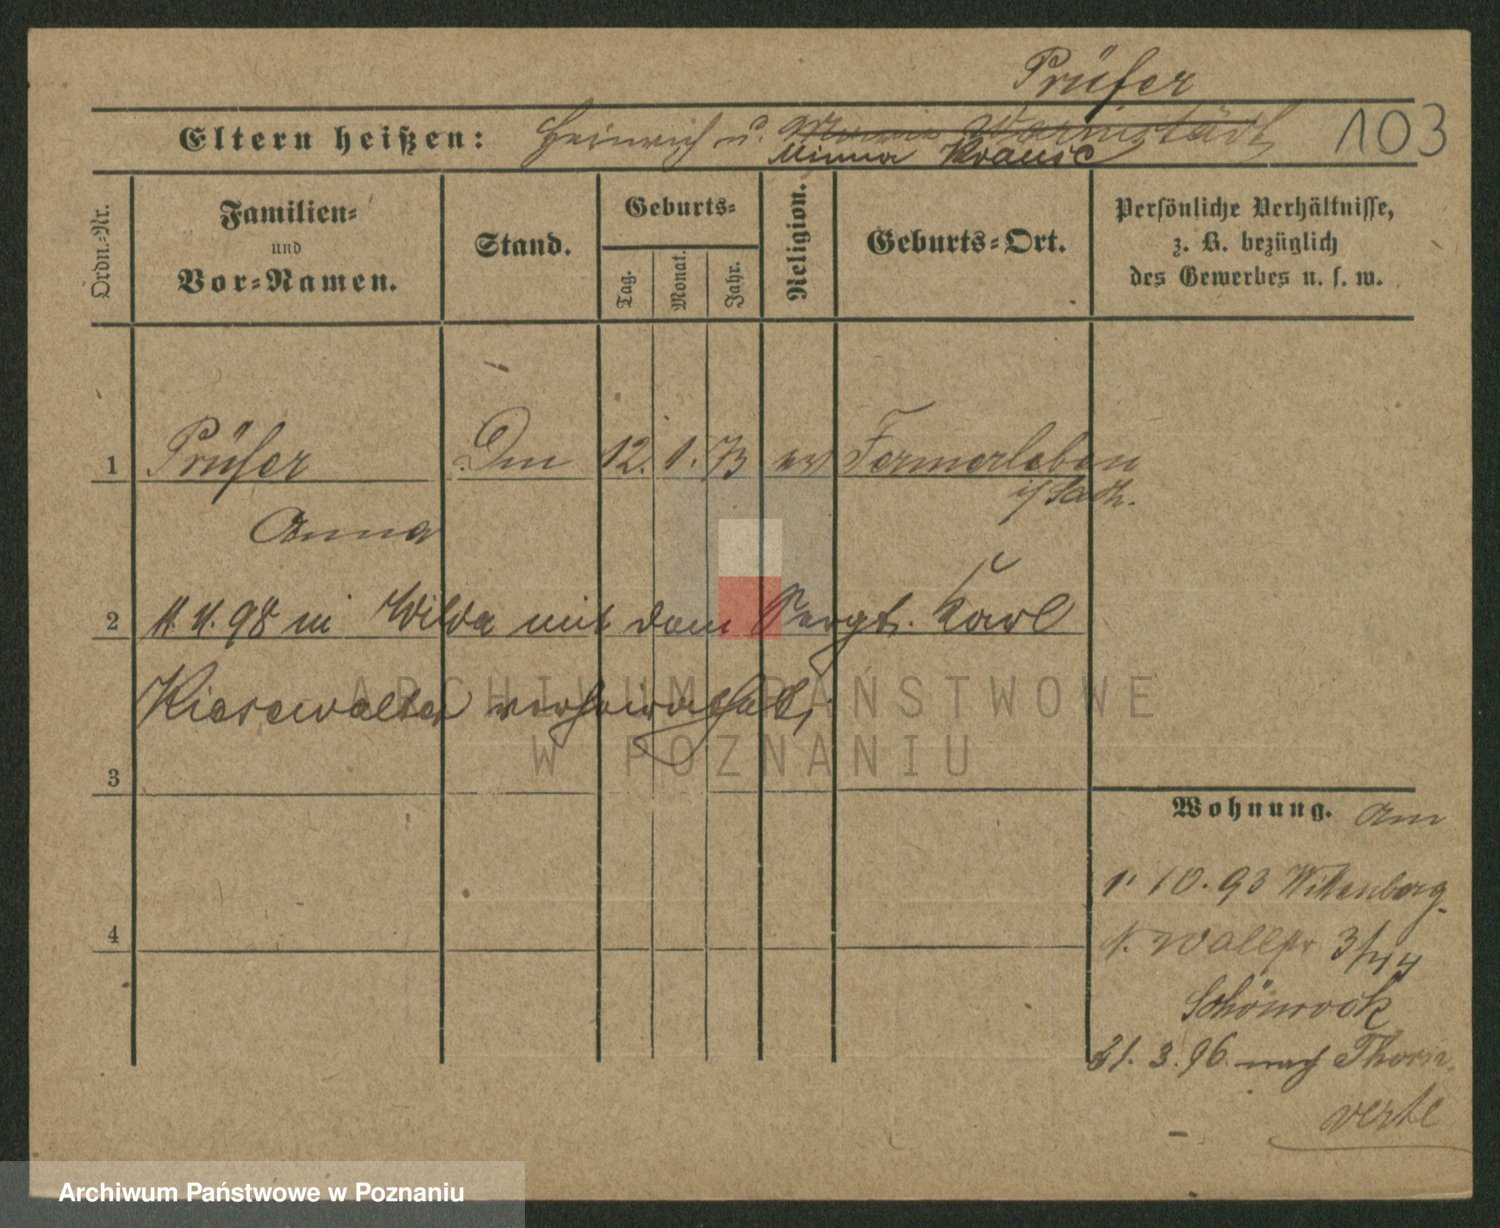 Prüfer
Eltern heißen: Heinrich u. Warmstädt
Minna Krause
103
Ordn.-Nr.
Familien-
und
Vor-Namen.
Stand.
Geburts-
Tag.
Monat.
Jahr.
Religion.
Geburts-Ort.
Persönliche Verhältnisse,
z. B. bezüglich
des Gewerbes u. s. w.
1 Prüfer 12. 1. 73 ev Fermersleben
i/Sach.
Anna
2 98 in Wilda mit dem Sergt. Karl
Kiesewalter verheirathet,
3
Wohnung. am
1. 10. 93 Wittenberg
4
N. Wallstr
Schönrock
31. 3. 96 nach Thorn.
verte
ARCHIWUM PAŃSTWOWE
W POZNANIU
Archiwum Państwowe w Poznaniu